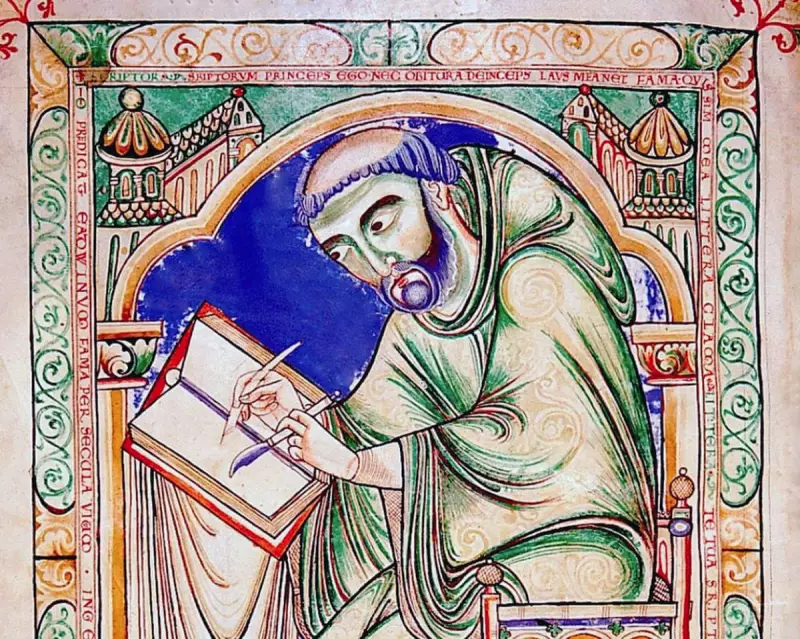 SRIPTORVM PRINCEPS EGO·NEC OBITURA DEINCEPS LAVS MEA NEC FAMA·QVI
SIM MEA LITTERA CLAMA LITTERA TE TUA SRIP
PREDICAT EADWINVM FAMA PER SECULA VIVVM · INGE